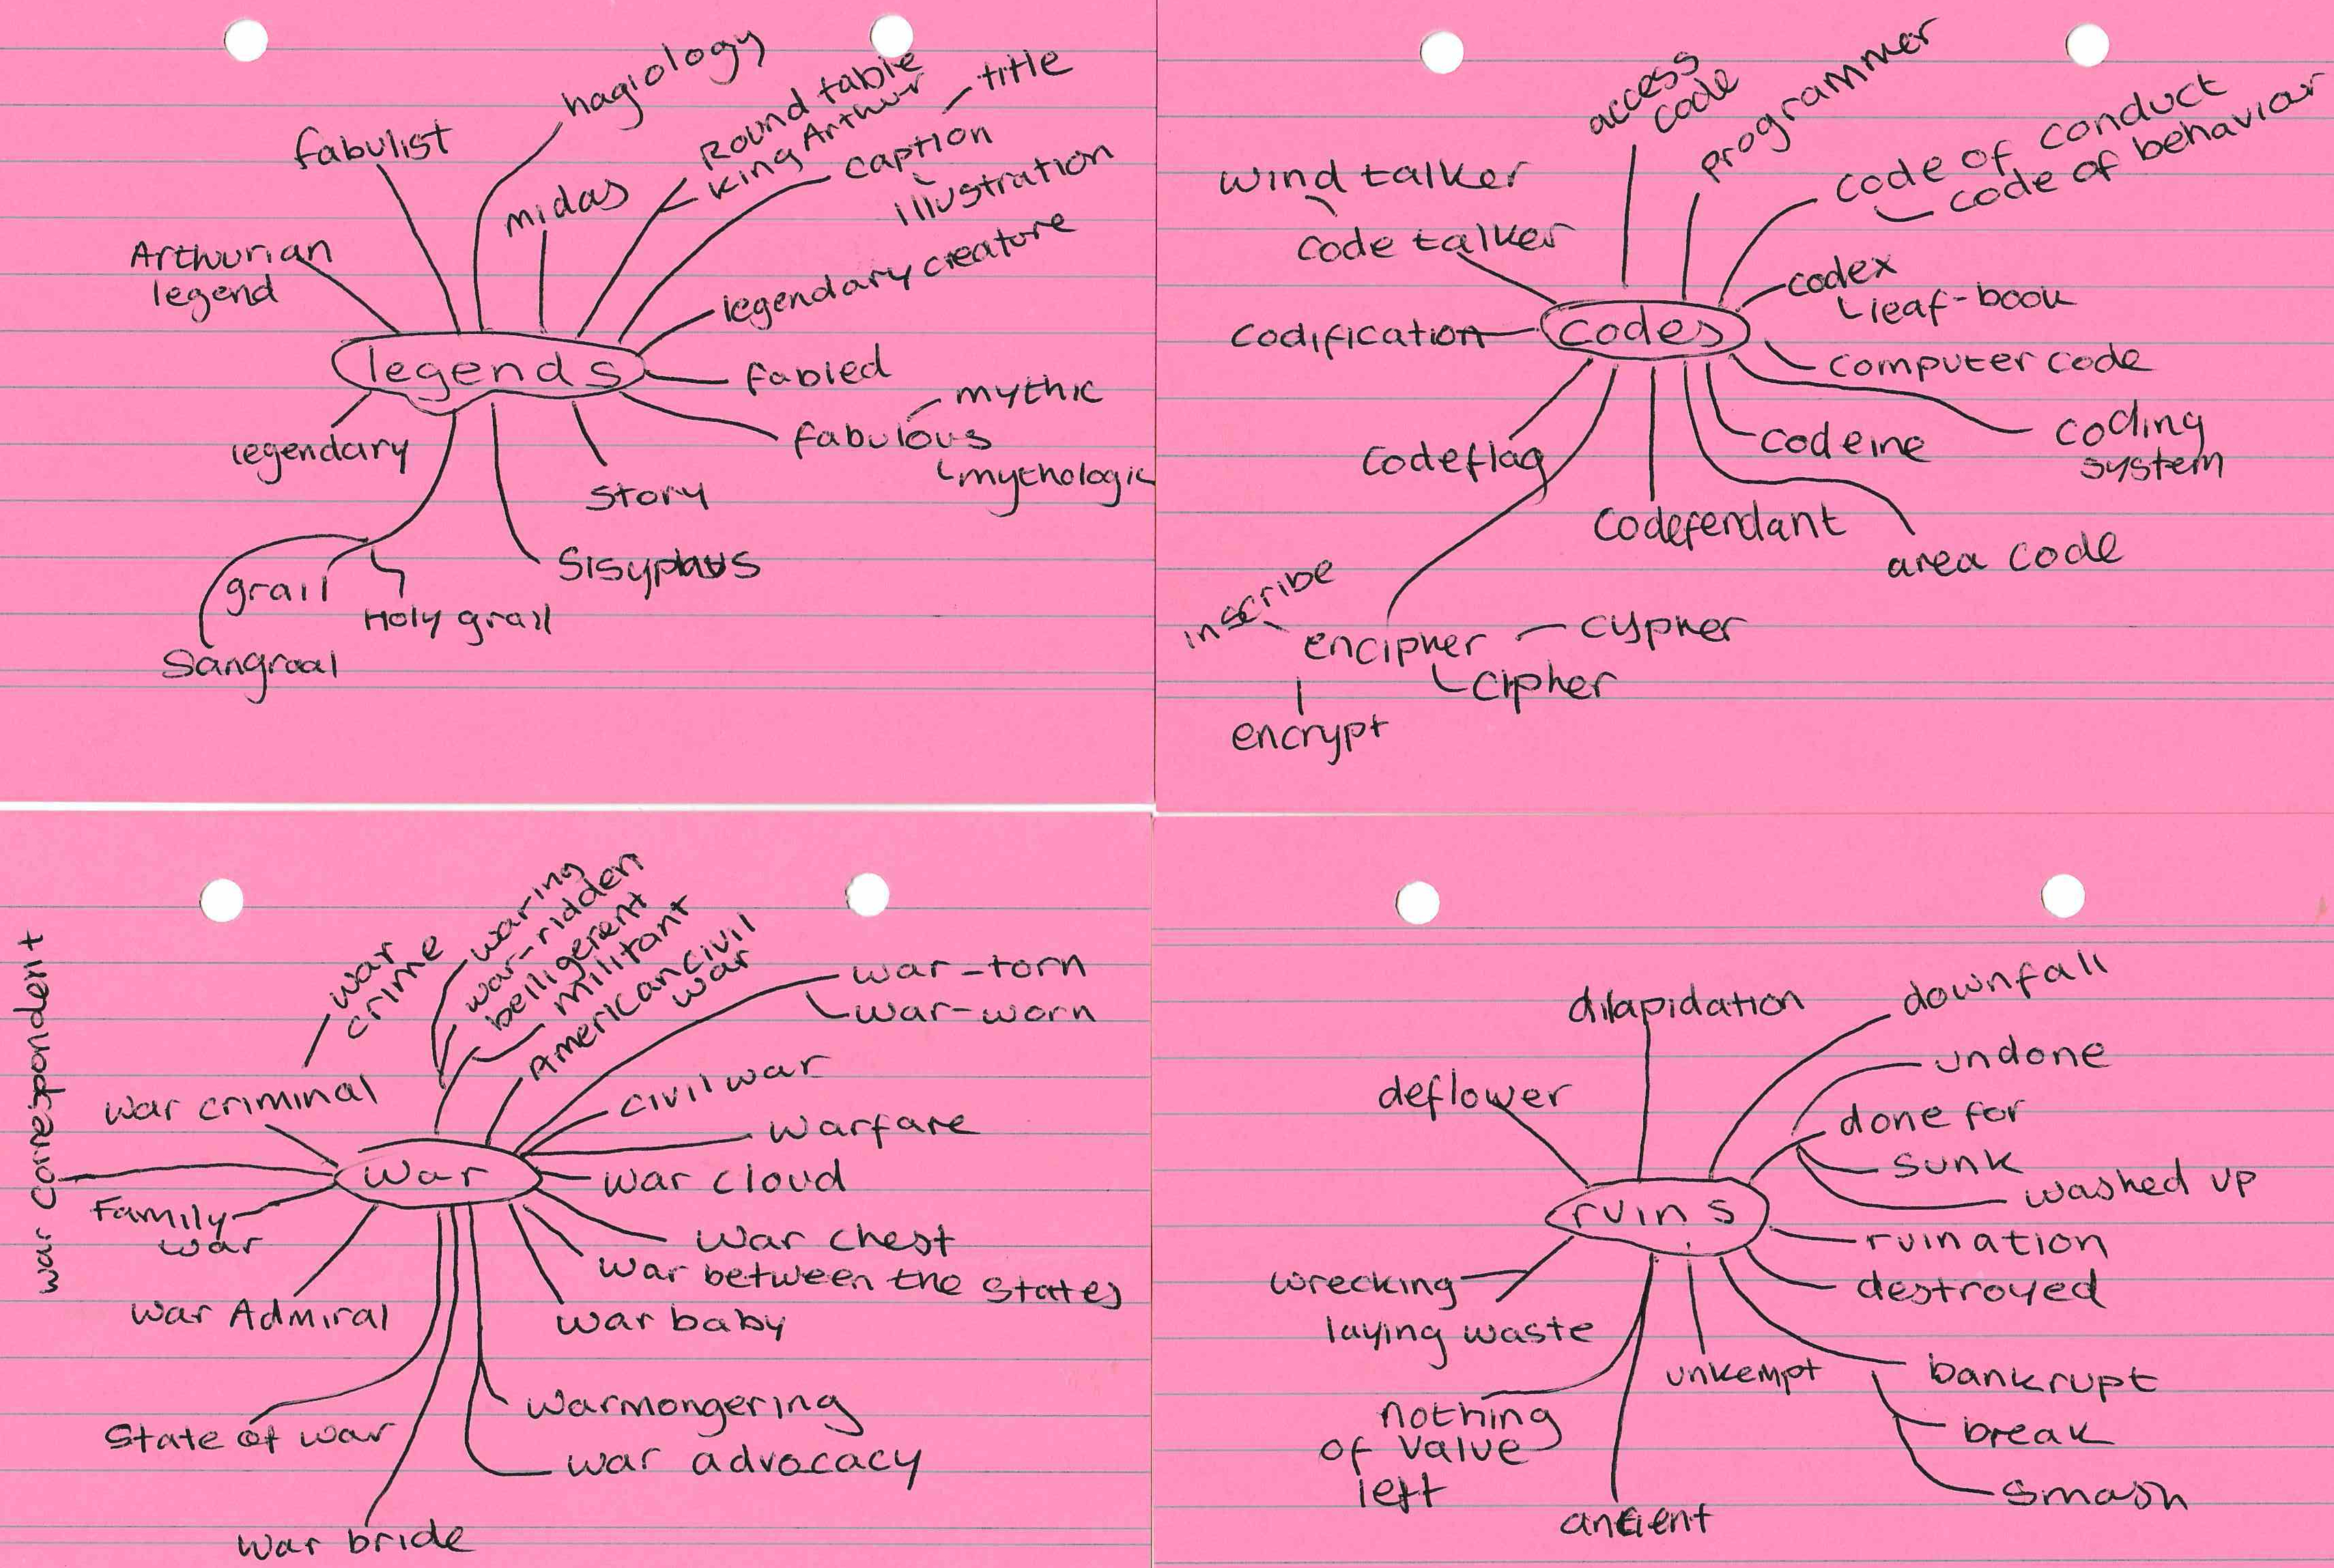 hagiology
fabulist
midas
Round table
King Arthur
title
caption
illustration
Arthurian
legend
legendary creature
legends
fabled
mythic
fabulous
mythologic
legendary
story
Sisyphus
grail
Holy grail
Sangraal
access
code
programmer
code of conduct
code of behaviour
wind talker
code talker
codex
leaf-book
codification
codes
computer code
coding
system
codeine
codeflag
codefendant
area code
inscribe
encipher
cypher
cipher
encrypt
war correspondent
war
crime
waring
war-ridden
belligerent
militant
American civil
war
war-torn
war-worn
war criminal
civil war
warfare
war
war cloud
Family
war
war chest
war between the states
war Admiral
war baby
State of war
warmongering
war advocacy
war bride
dilapidation
downfall
undone
deflower
done for
sunk
washed up
ruins
ruination
wrecking
destroyed
laying waste
unkempt
bankrupt
nothing
of value
left
break
smash
ancient